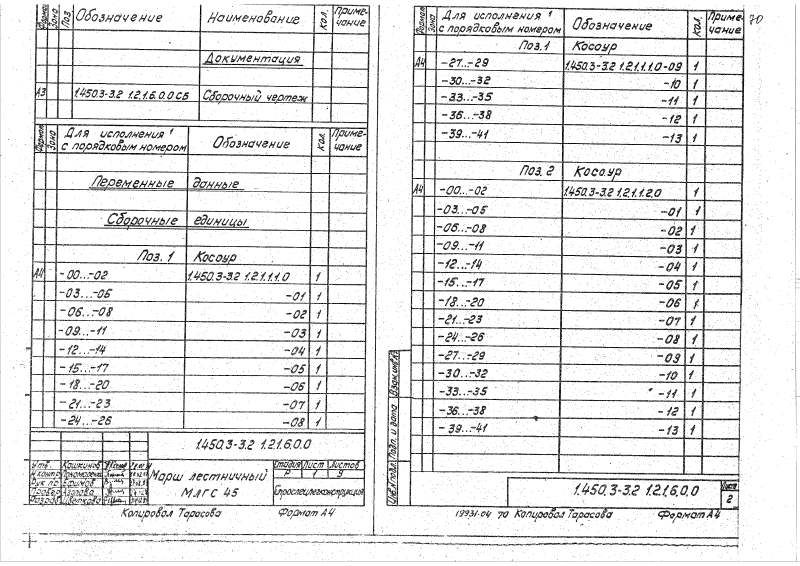 Формат Зона Поз. Обозначение Наименование Кол. Приме-чание
Документация
А3 1.450.3-3.2 1.2.1.6.0.0СБ Сборочный чертеж
Формат Зона Для исполнения¹ с порядковым номером Обозначение Кол. Приме-чание
Переменные данные
Сборочные единицы
Поз. 1 Косоур
А4 -00...-02 1.450.3-3.2 1.2.1.1.1.0 1
-03...-05 -01 1
-06...-08 -02 1
-09...-11 -03 1
-12...-14 -04 1
-15...-17 -05 1
-18...-20 -06 1
-21...-23 -07 1
-24...-26 -08 1
1.450.3-3.2 1.2.1.6.0.0
Утв. Кашкинов
Н.контр
Рук.гр Ефимов
Провер Азарова
Разраб Цветкова
Марш лестничный
МЛГС 45
Стадия Лист Листов
Р 9
Гипроспецлегконструкция
Копировал Тарасова Формат А4
70
Формат Зона Для исполнения¹ с порядковым номером Обозначение Кол. Приме-чание
Поз. 1 Косоур
А4 -27...-29 1.450.3-3.2 1.2.1.1.1.0-09 1
-30...-32 -10 1
-33...-35 -11 1
-36...-38 -12 1
-39...-41 -13 1
Поз. 2 Косоур
А4 -00...-02 1.450.3-3.2 1.2.1.1.2.0 1
-03...-05 -01 1
-06...-08 -02 1
-09...-11 -03 1
-12...-14 -04 1
-15...-17 -05 1
-18...-20 -06 1
-21...-23 -07 1
-24...-26 -08 1
-27...-29 -09 1
-30...-32 -10 1
-33...-35 -11 1
-36...-38 -12 1
-39...-41 -13 1
Инв.№подл. Подп. и дата Взам.инв.№
1.450.3-3.2 1.2.1.6.0.0
Лист
2
19931-04 70 Копировал Тарасова Формат А4